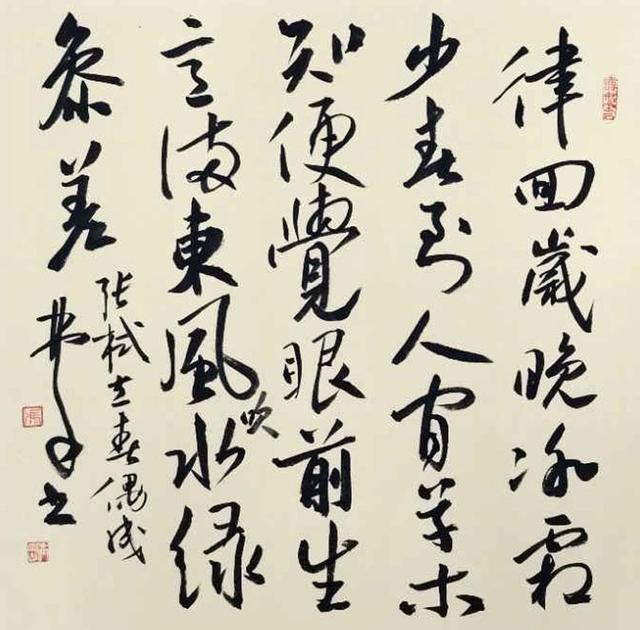 律回歲晚冰霜
少春到人间草木
知便覺眼前生
意满東風吹水绿
參差
张栻立春偶成
书